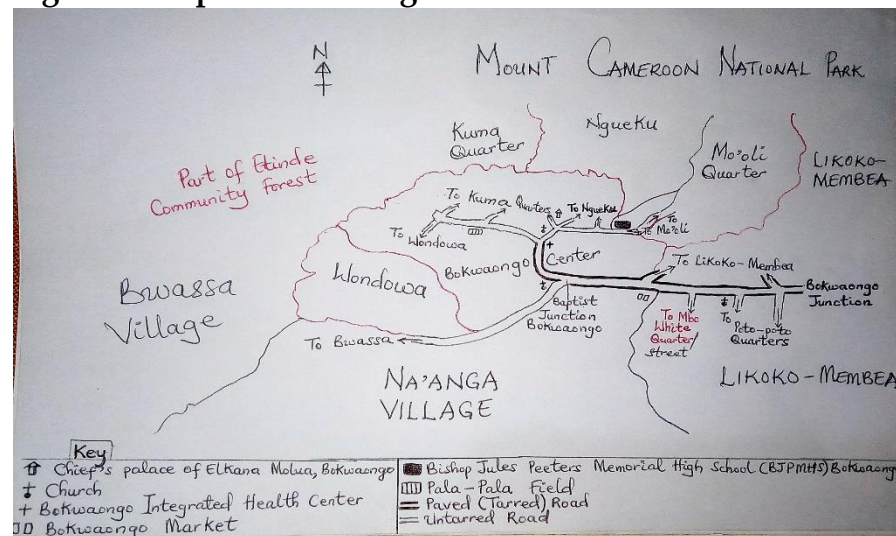 N
MOUNT CAMEROON NATIONAL PARK
Kuma
Quarter
Ngueku
Mo'oli
Quarter
LIKOKO-
MEMBEA
Part of Etinde
Community Forest
To Kuma Quarters
To Ngueku
To
Mo'oli
To
Wondowa
Bokwaongo
Center
To Likoko-Membea
Wondowa
Bwassa
Village
Baptist
Junction
Bokwaongo
Bokwaongo
Junction
To Mbo
White
Quarter/
Street
To
Poto-poto
Quarters
To Bwassa
NA'ANGA
VILLAGE
LIKOKO-MEMBEA
Key
Chief's palace of Elkana Molua, Bokwaongo
Church
Bokwaongo Integrated Health Center
Bokwaongo Market
Bishop Jules Peeters Memorial High School (BJPMHS) Bokwaong
Pala-Pala Field
Paved (Tarred) Road
Untarred Road